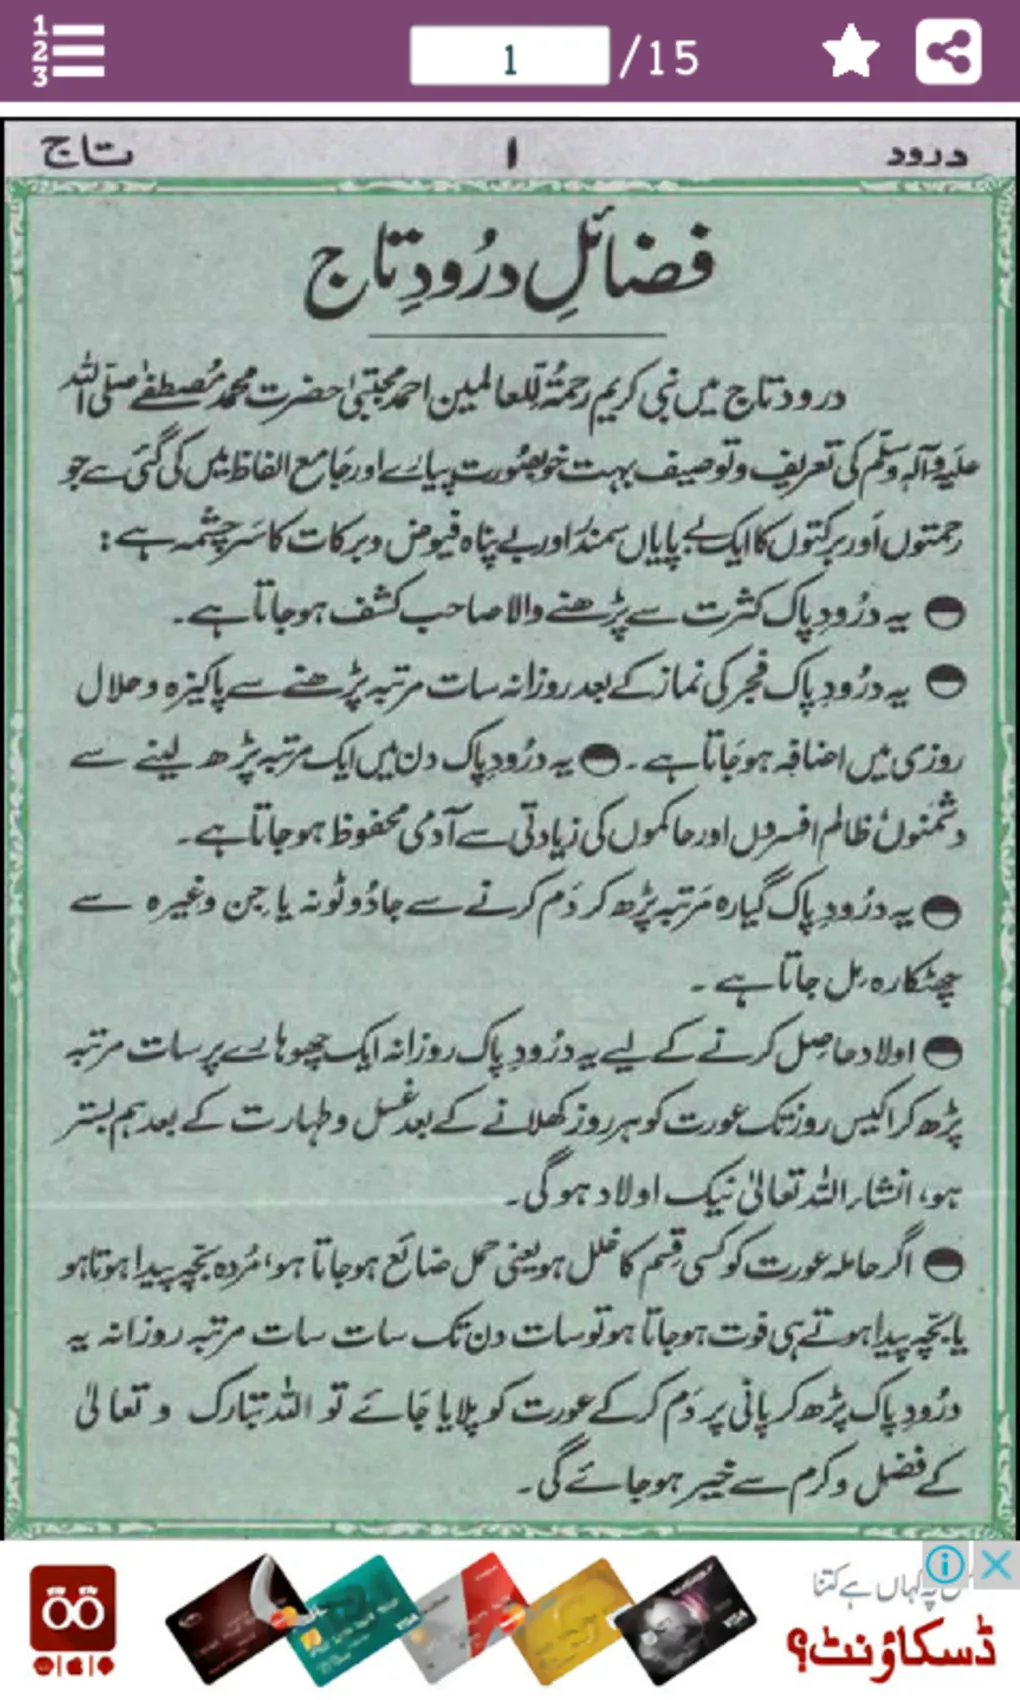 1
2
3
1 /15
درود ۱ تاج
فضائلِ درُودِ تاج
درود تاج میں نبی کریم رحمۃٌ للعالمین احمد مجتبیٰ حضرت محمد مُصطفےٰ صلّی اللہ
علیہ وآلہ وسلّم کی تعریف و توصیف بہت خوبصُورت پیارے اور جَامع الفاظ میں کی گئی ہے جو
رحمتوں اَور برکتوں کا ایک بے پایاں سمندُ اور بے پناہ فیوض و برکات کا سَر چشمہ ہے :
یہ درُودِ پاک کثرت سے پڑھنے والا صاحب کشف ہو جاتا ہے۔
یہ درُودِ پاک فجر کی نماز کے بعد روزانہ سات مرتبہ پڑھنے سے پاکیزہ و حلال
روزی میں اضافہ ہو جَاتا ہے ۔ یہ درُودِ پاک دن میں ایک مرتبہ پڑھ لینے سے
دشمنوں ظالم افسروں اور حاکموں کی زیادتی سے آدمی محفوظ ہو جاتا ہے۔
یہ درُودِ پاک گیارہ مَرتبہ پڑھ کر دَم کرنے سے جادُو ٹونہ یا جِن وغیرہ سے
چھٹکارہ مِل جاتا ہے ۔
اولاد حاصِل کرنے کے لیے یہ درُودِ پاک روزانہ ایک چھوہارے پر سات مرتبہ
پڑھ کر اکیس روز تک عورت کو ہر روز کھلانے کے بعد غسل و طہارت کے بعد ہم بستر
ہو، انشاء اللہ تعالیٰ نیک اولاد ہو گی۔
اگر حاملہ عورت کو کسی قِسم کا خلل ہو یعنی حمل ضائع ہو جاتا ہو، مُردہ بچّہ پیدا ہوتا ہو
یا بچّہ پیدا ہوتے ہی فوت ہو جاتا ہو تو سات دن تک سات سات مرتبہ روزانہ یہ
درُودِ پاک پڑھ کر پانی پر دَم کر کے عورت کو پلایا جَائے تو اللہ تبارک و تعالیٰ
کے فضل و کرم سے خیر ہو جائے گی۔
پہ کہاں ہے کتنا
ڈسکاؤنٹ؟